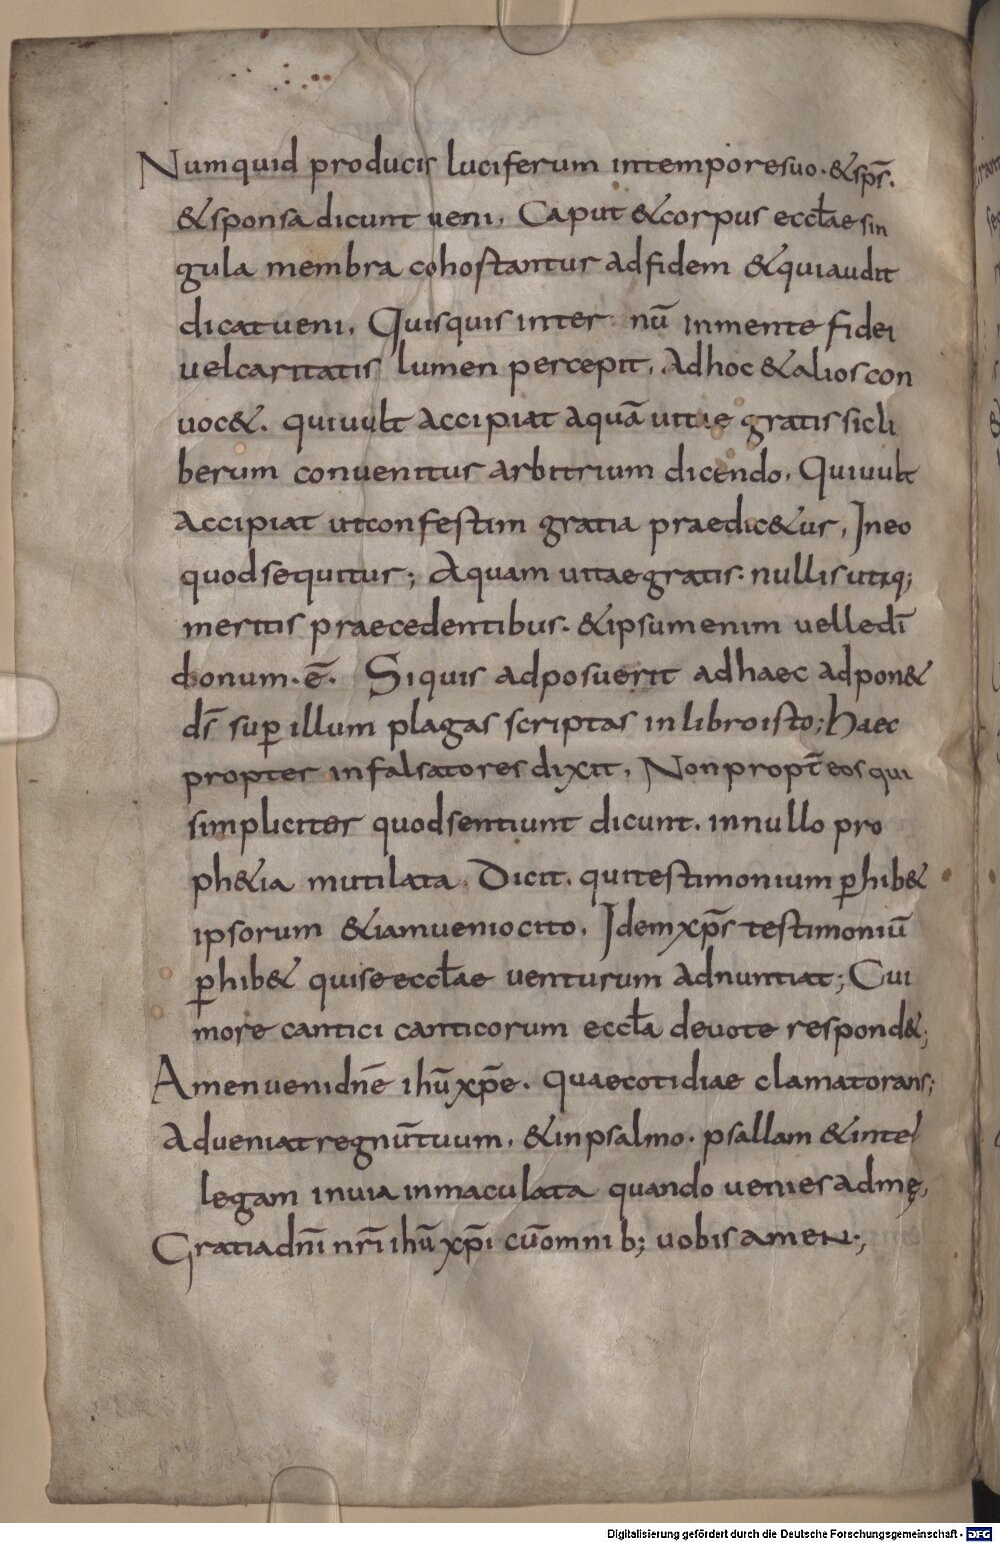 Numquid producis luciferum intemporesuo. &sp̄s.
&sponsa dicunt ueni, Caput &corpus eccl̄ae sin
gula membra cohostantur adfidem &quiaudit
dicat ueni, Quisquis inter nū inmente fidei
uelcaritatis lumen percepit, Adhoc &alios con
uoc&. quiuult accipiat aquā uitae gratis sicli
berum conuenitur arbitrium dicendo, Quiuult
accipiat utconfestim gratia praedic&ur, Ineo
quodsequitur; Aquam uitaegratis. nullisutiq;
meritis praecedentibus. &ipsumenim uelledī
donum.ē. Siquis adposuerit adhaec adpon&
ds̄ sup̄ illum plagas scriptas inlibroisto; haec
propter infalsatores dixit, Nonpropt̄ eos qui
simpliciter quodsentiunt dicunt. innullo pro
ph&ia mutilata, Dicit. quitestimonium p̱hib&
ipsorum &iamueniocito, Idem xp̄s testimoniū
p̱hib& quiseeccl̄ae uenturum adnuntiat; Cui
more cantici canticorum eccl̄a deuote respond&;
Amenuenidn̄e ihū xp̄e. quaecotidiae clamatorans;
Adueniatregnūtuum, &inpsalmo. psallam &intel
legam inuia inmaculata quando uenies admę,
Gratiadn̄i nr̄i ihū xp̄i cūomnib; uobis amen.;
Digitalisierung gefördert durch die Deutsche Forschungsgemeinschaft - DFG